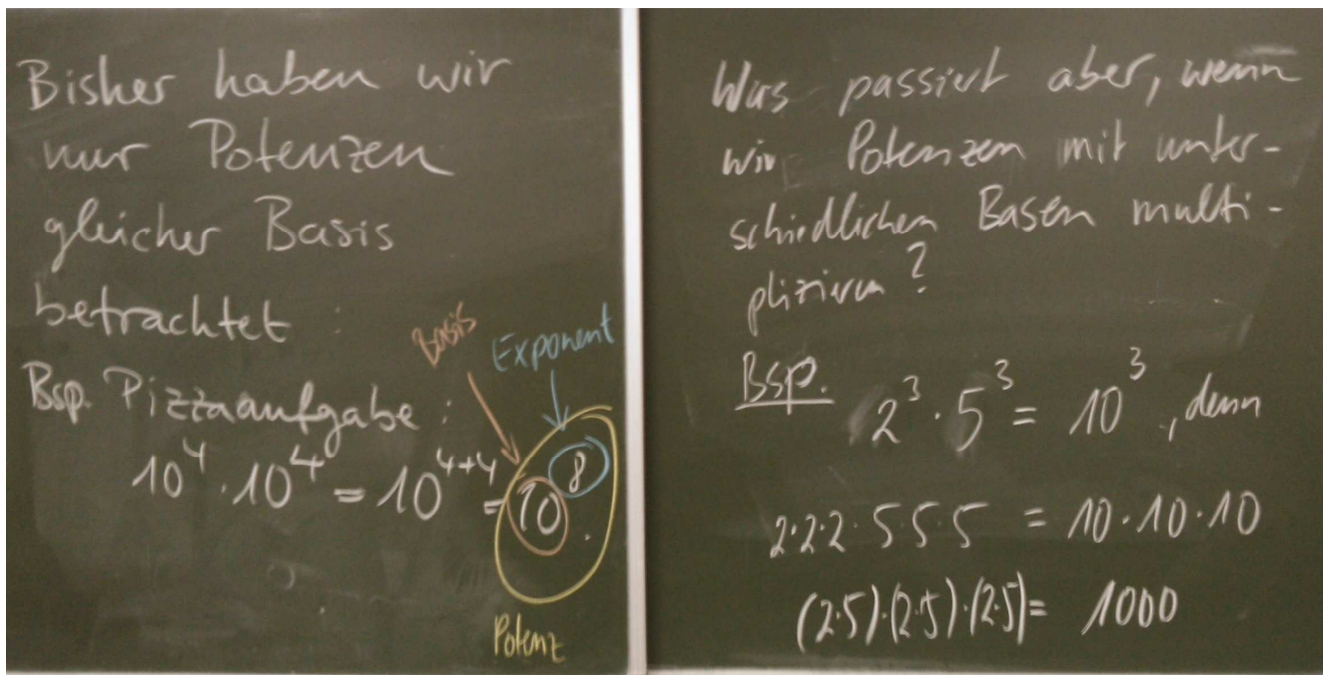 Bisher haben wir
nur Potenzen
gleicher Basis
betrachtet :
Basis
Exponent
Bsp. Pizzaaufgabe :
10⁴ · 10⁴ = 10⁴⁺⁴ = 10⁸ .
Potenz
Was passiert aber, wenn
wir Potenzen mit unter-
schiedlichen Basen multi-
plizieren ?
Bsp. 2³ · 5³ = 10³ , denn
2·2·2 · 5·5·5 = 10·10·10
(2·5)·(2·5)·(2·5) = 1000